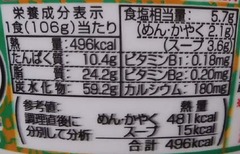 栄養成分表示
1食(106g)当たり
熱量 496kcal
たんぱく質 10.4g
脂質 24.2g
炭水化物 59.2g
食塩相当量: 5.7g
(めん・かやく 2.1g)
(スープ 3.6g)
ビタミンB1: 0.18mg
ビタミンB2: 0.20mg
カルシウム: 180mg
参考値:
調理直後に
分別して分析
熱量
めん・かやく 481kcal
スープ 15kcal
合計 496kcal